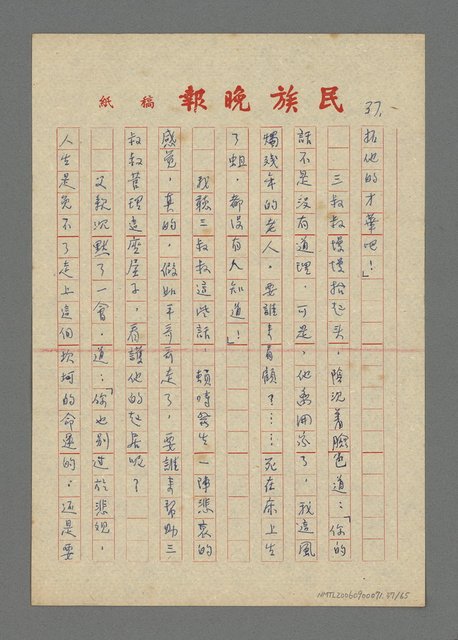 民族晚報 稿紙
37.
拓他的才華吧！」
三叔叔慢慢抬起头，陰沉着臉色道：「你的
話不是没有道理，可是，他离開家了，我這風
燭残年的老人，要誰来看顧？……死在床上生
了蛆，都没有人知道！」
我聽三叔叔這些話，頓時發生一陣悲哀的
感覚，真的，假如平哥哥走了，要誰来帮助三
叔叔管理這座屋子，看護他的起居呢？
父親沉默了一會，道：「你也別過於悲觀，
人生是免不了走上這個坎坷的命運的；还是要
NMTL20060900071.47/65